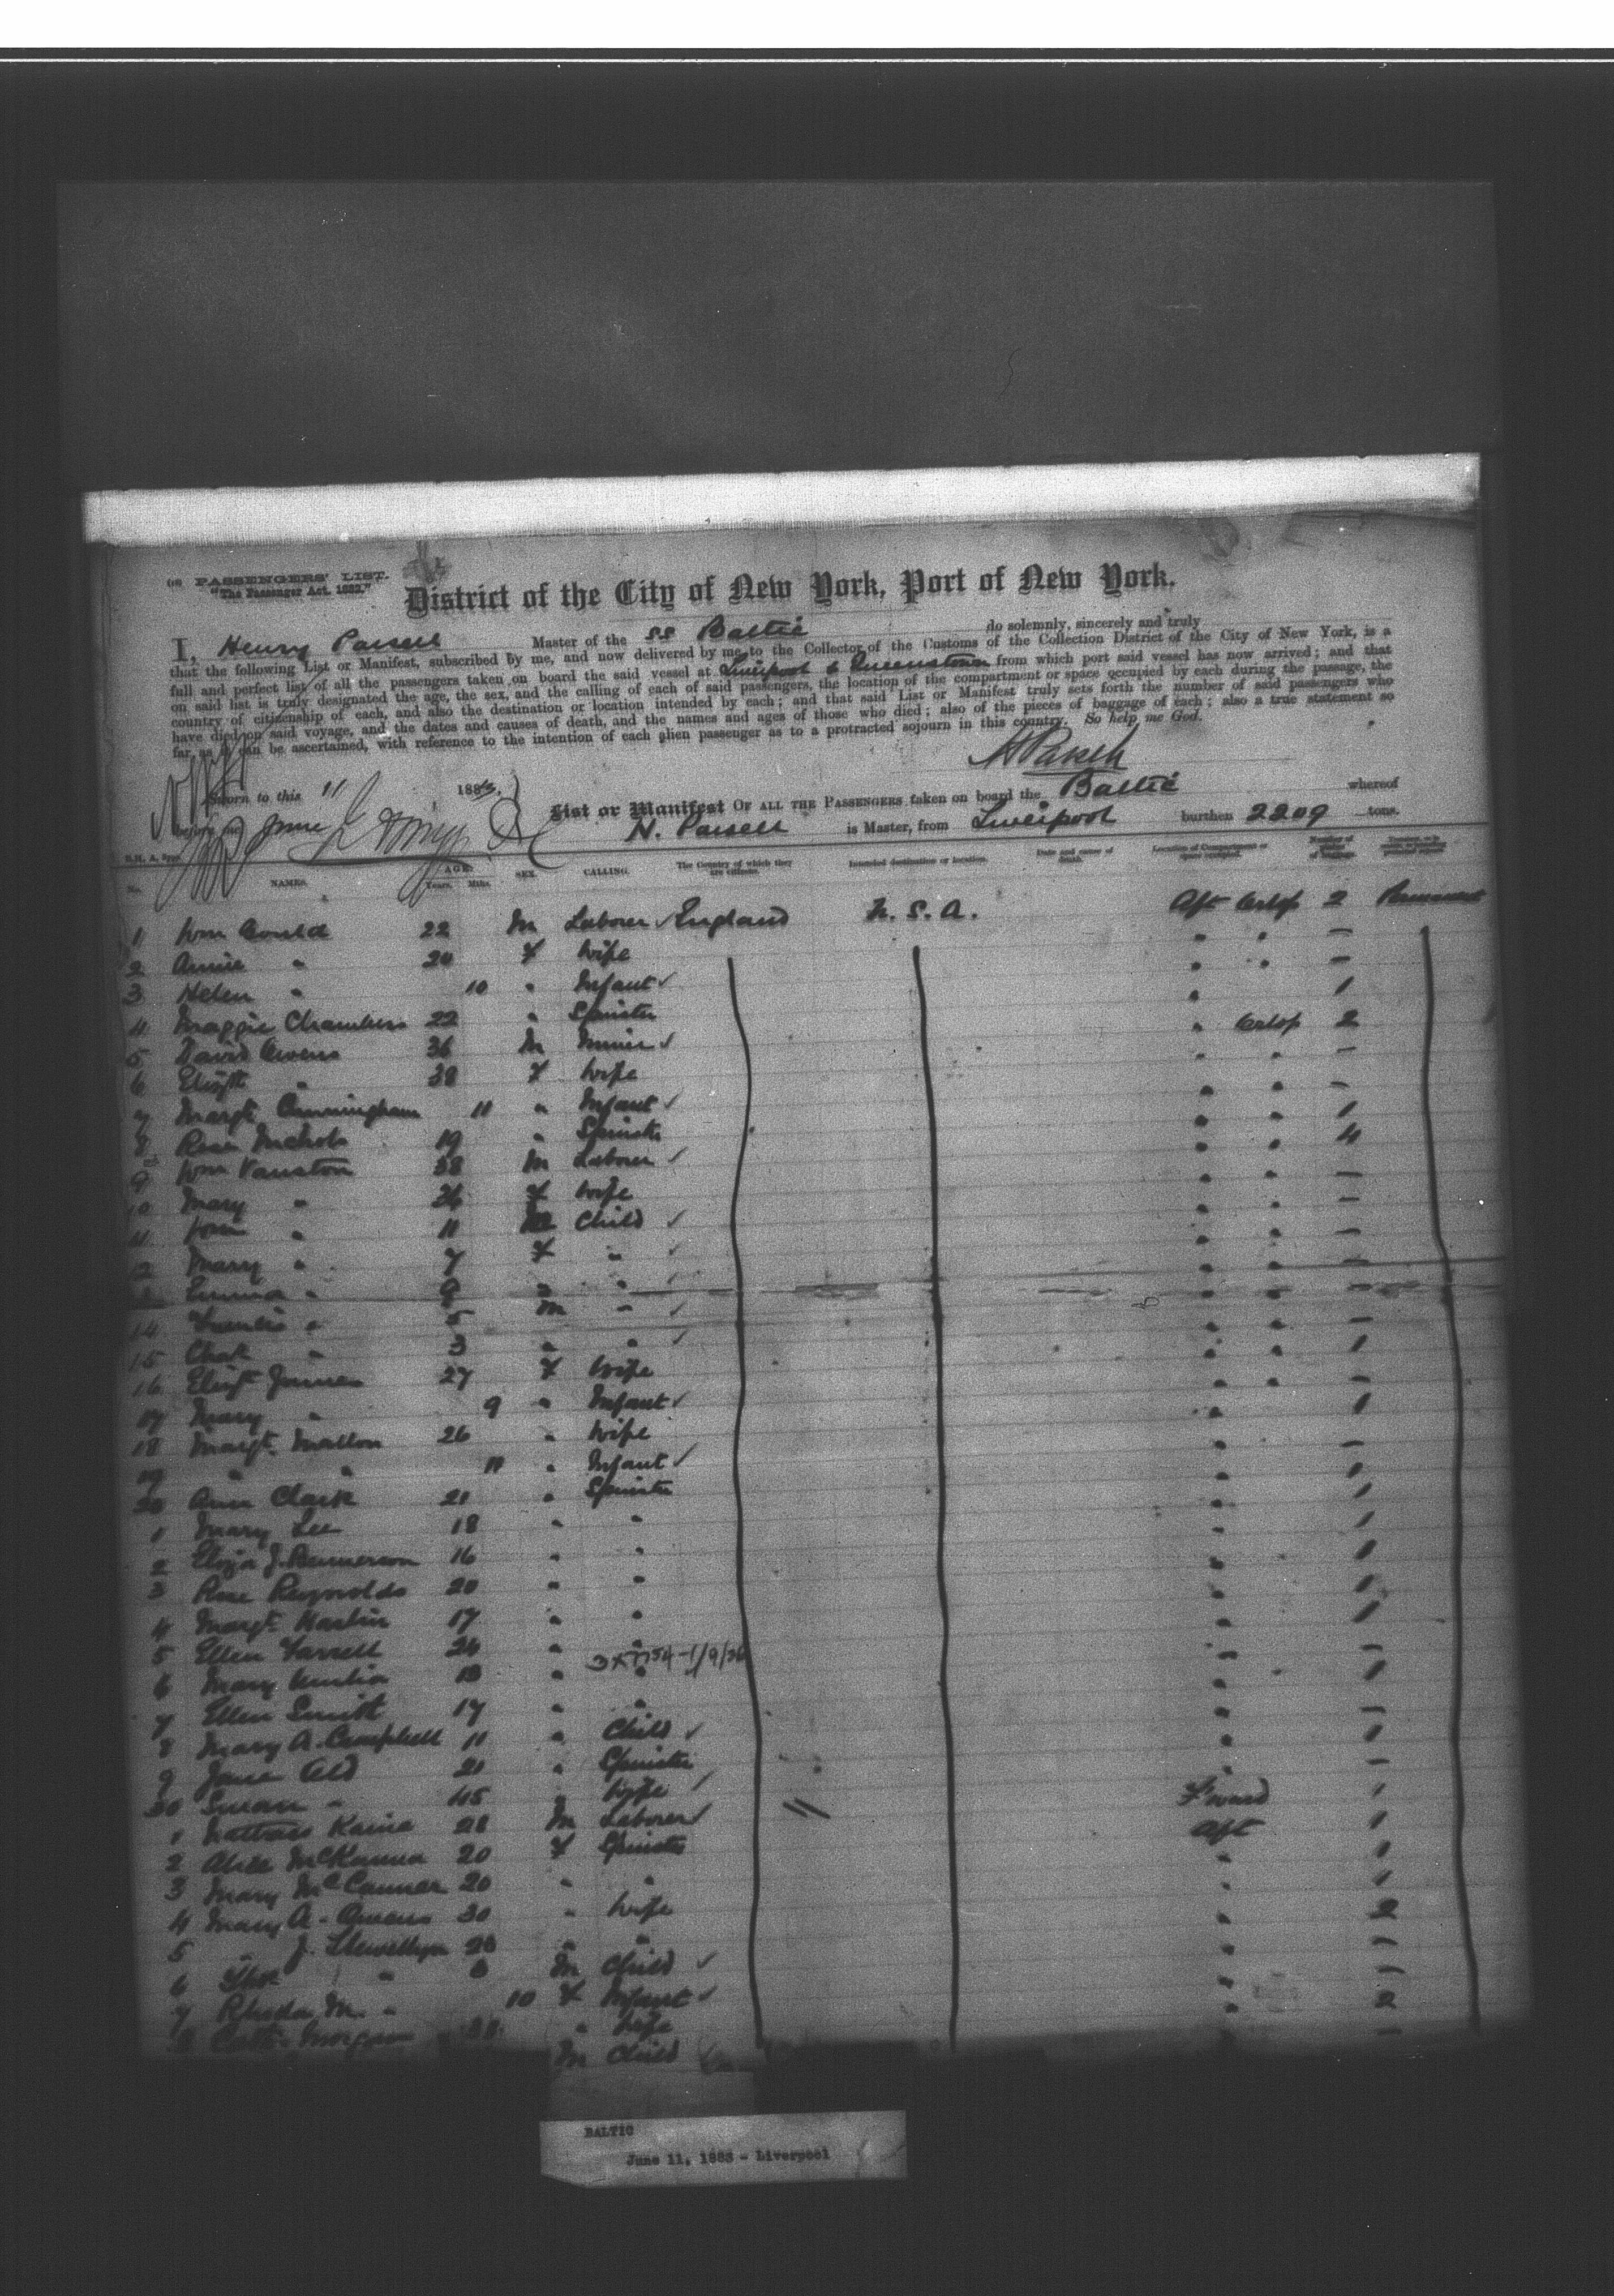 PASSENGERS' LIST.
"The Passenger Act, 1882."
District of the City of New York, Port of New York.
I, Henry Parsell Master of the SS Baltic do solemnly, sincerely and truly
that the following List or Manifest, subscribed by me, and now delivered by me to the Collector of the Customs of the Collection District of the City of New York, is a
full and perfect list of all the passengers taken on board the said vessel at Liverpool & Queenstown from which port said vessel has now arrived; and that
on said list is truly designated the age, the sex, and the calling of each of said passengers, the location of the compartment or space occupied by each during the passage, the
country of citizenship of each, and also the destination or location intended by each; and that said List or Manifest truly sets forth the number of said passengers who
have died on said voyage, and the dates and causes of death, and the names and ages of those who died; also of the pieces of baggage of each; also a true statement so
far as it can be ascertained, with reference to the intention of each alien passenger as to a protracted sojourn in this country. So help me God.
H Parsell
Sworn to this 11 188
before me June
List or Manifest OF ALL THE PASSENGERS taken on board the Baltic whereof
H. Parsell is Master, from Liverpool burthen 2209 tons.
No. NAMES. AGE. Years. Mths. SEX. CALLING. The Country of which they are citizens. Intended destination or location. Date and cause of death. Location of Compartment or space occupied. Number of pieces of baggage.
1 Wm Gould 22 M Laborer ✓ England U.S.A. Aft Orlop 2 Permanent
2 Annie " 20 F Wife " " —
3 Helen " 10 " Infant ✓ " " —
4 Maggie Chambers 22 " Spinster " 1
5 David Owens 36 M Miner ✓ " Orlop 2
6 Elizth " 38 F Wife " " —
7 Margt Cunningham 11 " Infant ✓ " " —
8 Rose Nichols 19 " Spinster " " 1
9 Wm Vanston 38 M Laborer ✓ " " 4
10 Mary " 36 F Wife " " —
11 Wm " 11 M Child ✓ " " —
2 Mary " 7 F " ✓ " " —
Emma " 9 " " ✓ " " —
14 Francis " 5 M " ✓ " " —
15 Chas " 3 " " ✓ " " —
16 Elizth James 27 F Wife " " 1
17 Mary " 9 " Infant ✓ " " —
18 Margt Mallon 26 " Wife " 1
19 " " 11 " Infant ✓ " —
20 Ann Clark 21 " Spinster " 1
1 Mary Lee 18 " " " 1
2 Eliza J. 16 " " " 1
3 Rose Reynolds 20 " " " 1
4 Margt 17 " " " 1
5 Ellen Farrell 24 " " " 1
6 Mary 18 " " " —
7 Ellen Smith 17 " " " 1
8 Mary A. Campbell 11 " Child ✓ " —
9 Jane 21 " Spinster " 1
30 Susan " 45 " Wife ✓ " —
1 Kaine 28 M Laborer ✓ F'ward 1
2 Alice McKanna 20 F Spinster Aft 1
3 Mary McCanner 20 " " " 1
4 Mary A. Owens 30 " Wife " 1
5 " J. Llewellyn 26 " " " 2
6 Thos " M Child ✓ " —
7 Rhoda M. " 10 F Infant ✓ " —
8 Morgan " Wife " 2
M Child —
BALTIC
June 11, 1883 - Liverpool